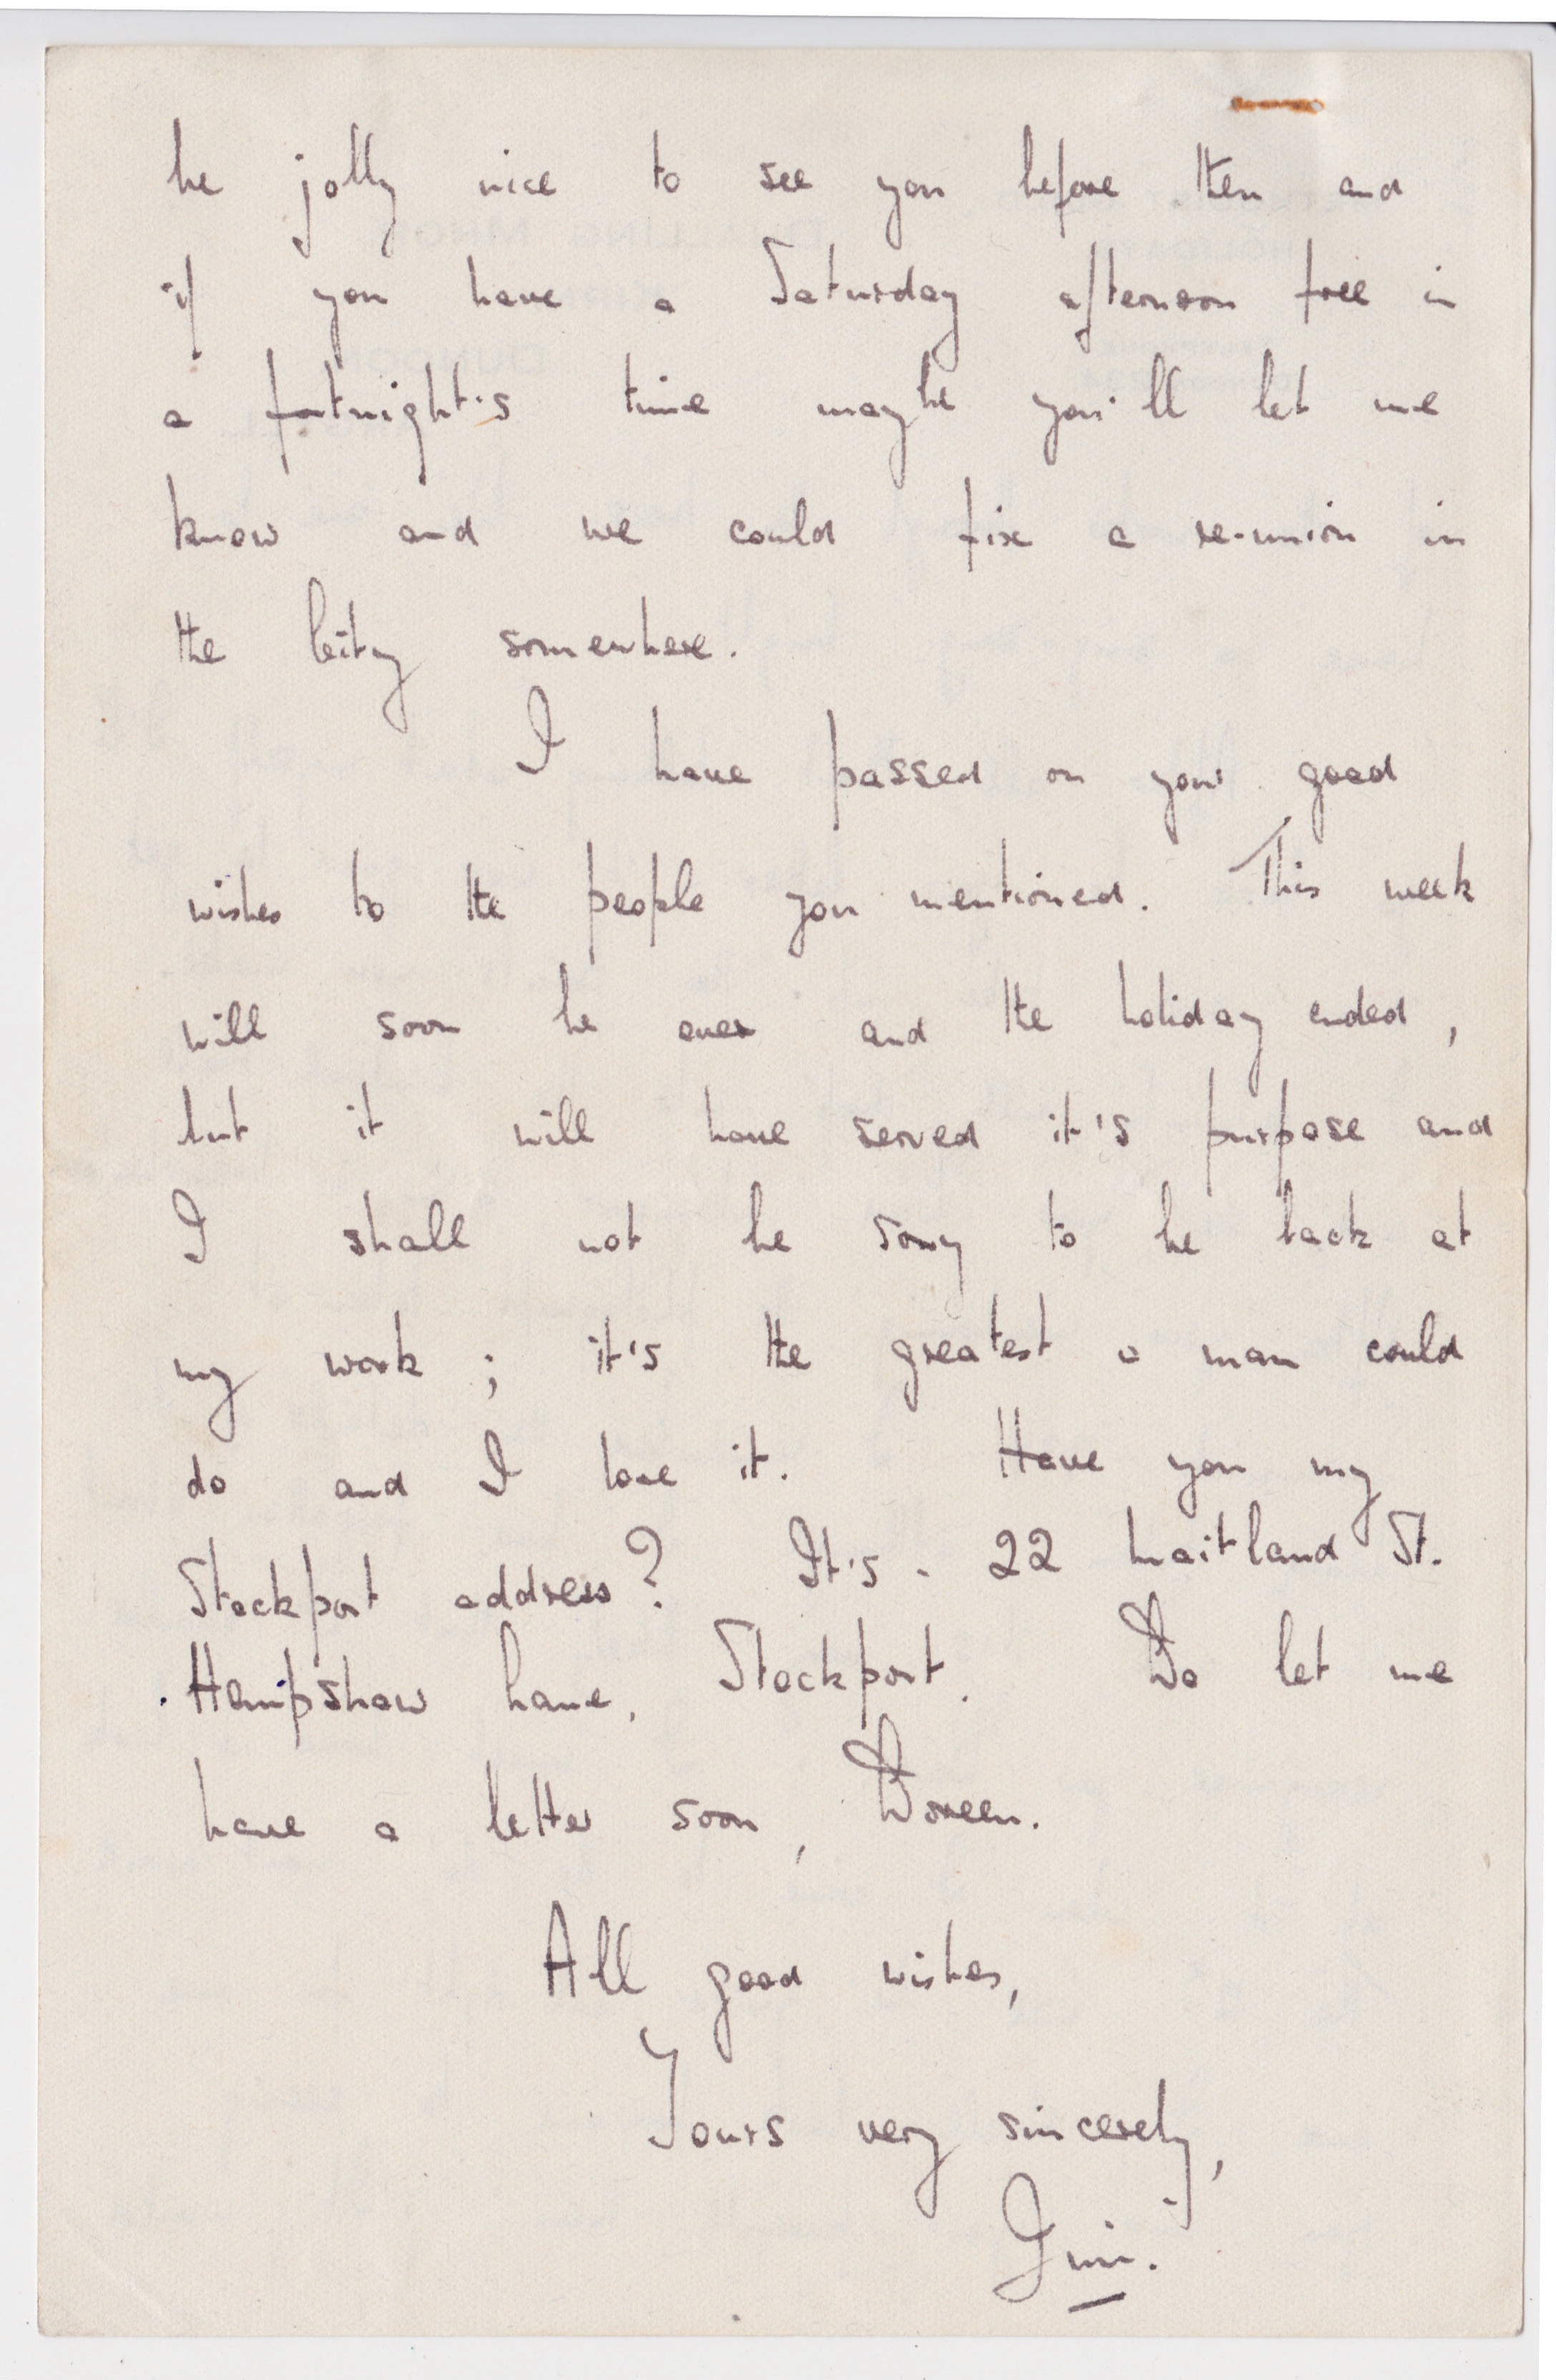 be jolly nice to see you before then and
if you have a Saturday afternoon free in
a fortnight's time maybe you'll let me
know and we could fix a re-union in
the City somewhere.
I have passed on your good
wishes to the people you mentioned. This week
will soon be over and the holiday ended,
but it will have served it's purpose and
I shall not be sorry to be back at
my work; it's the greatest a man could
do and I love it. Have you my
Stockport address? It's - 22 Maitland St.
Hempshaw Lane, Stockport. Do let me
have a letter soon, Doreen.
All good wishes,
Yours very sincerely,
Jim.